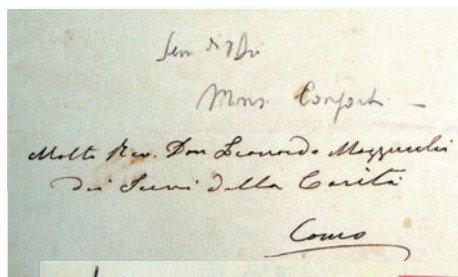 Serv. di Dio
Mons Conforti
Molto Rev. Don Leonardo Mazzucchi
dei Servi della Carità
Como